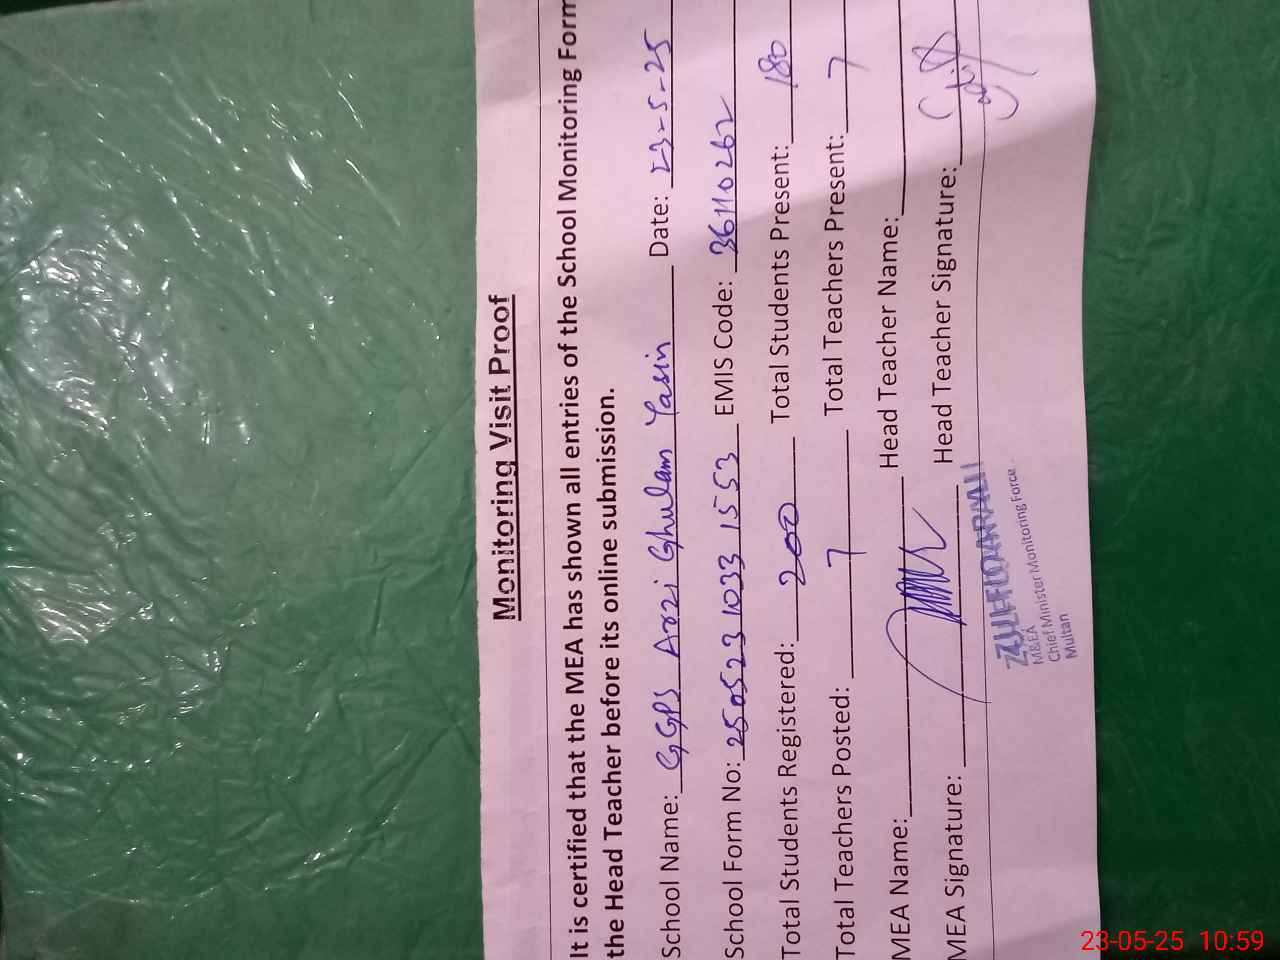 Monitoring Visit Proof
It is certified that the MEA has shown all entries of the School Monitoring Form
the Head Teacher before its online submission.
School Name: GGPS Arzi Ghulam Yasin Date: 23-5-25
School Form No: 250523 1033 1553 EMIS Code: 36110262
Total Students Registered: 200 Total Students Present: 180
Total Teachers Posted: 7 Total Teachers Present: 7
MEA Name: Head Teacher Name:
MEA Signature: Head Teacher Signature:
M&EA
Chief Minister Monitoring Force
Multan
23-05-25 10:59